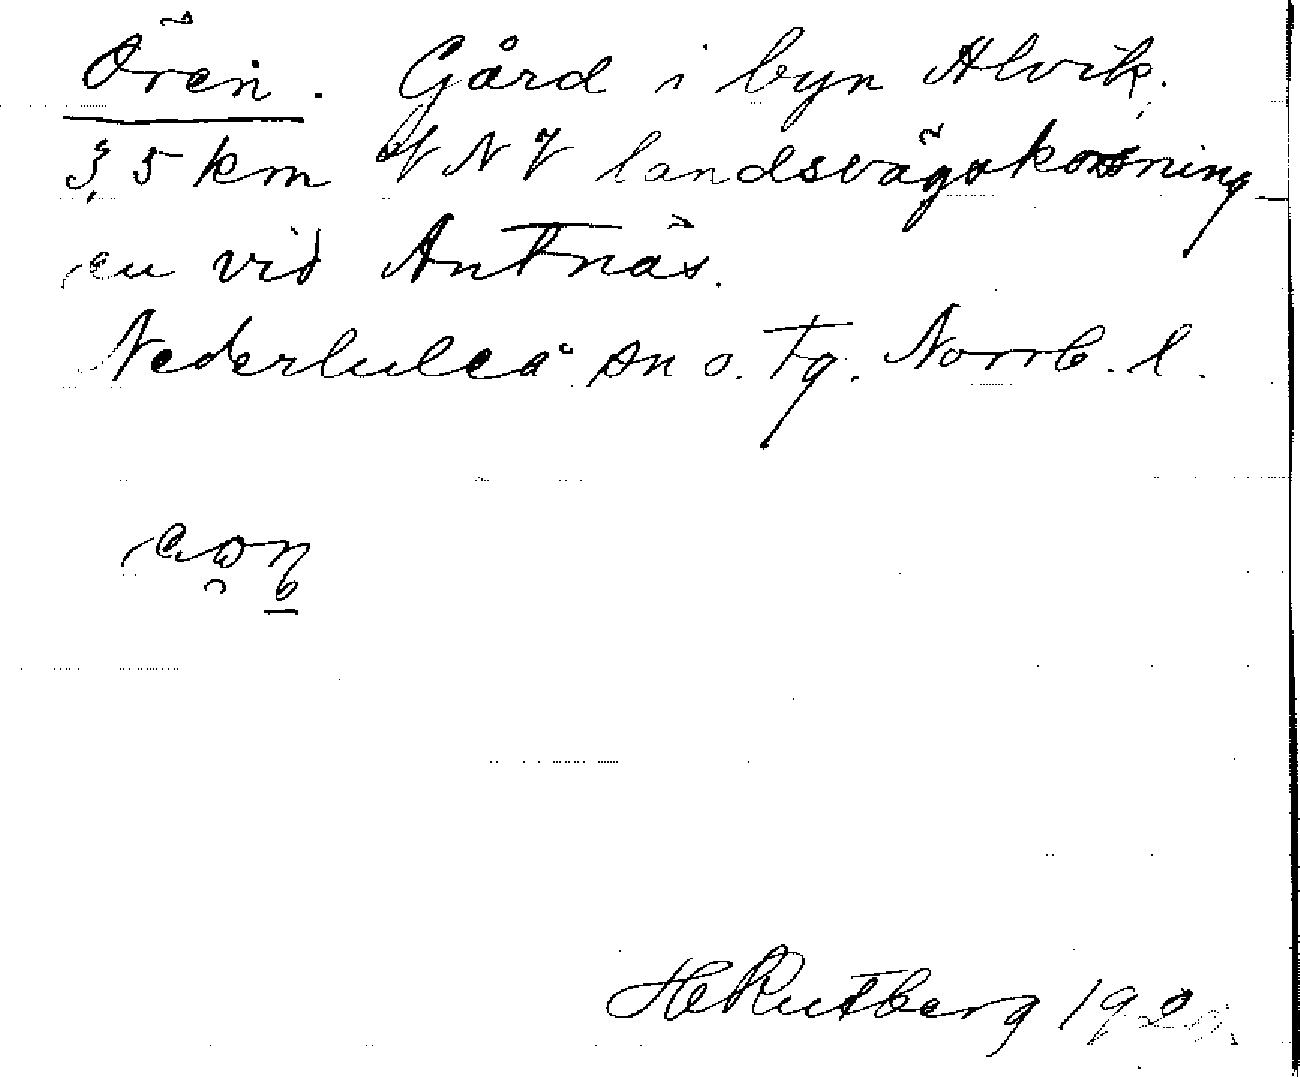 Ören. Gård i byn Alvik.
3,5 km VNV landsvägskorsning-
en vid Antnäs.
Nederluleå sn o. tg. Norrb. l.
HeRutberg